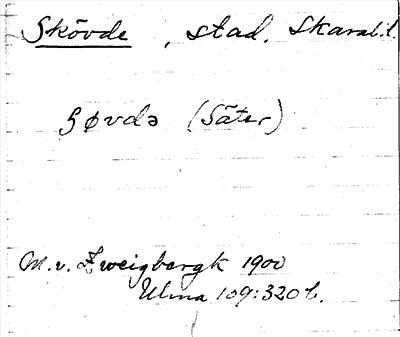 Skövde, stad. Skarab.l.
ʂøvdə (Säter)
M. v. Zweigbergk 1900
Ulma 109:320 b.